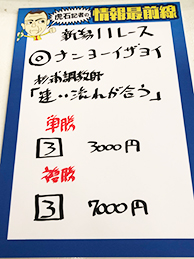 虎石記者の
情報最前線
新潟11レース
◎ナンヨーイザヨイ
杉浦調教師
「速い流れが合う」
単勝
3 3000円
複勝
3 7000円